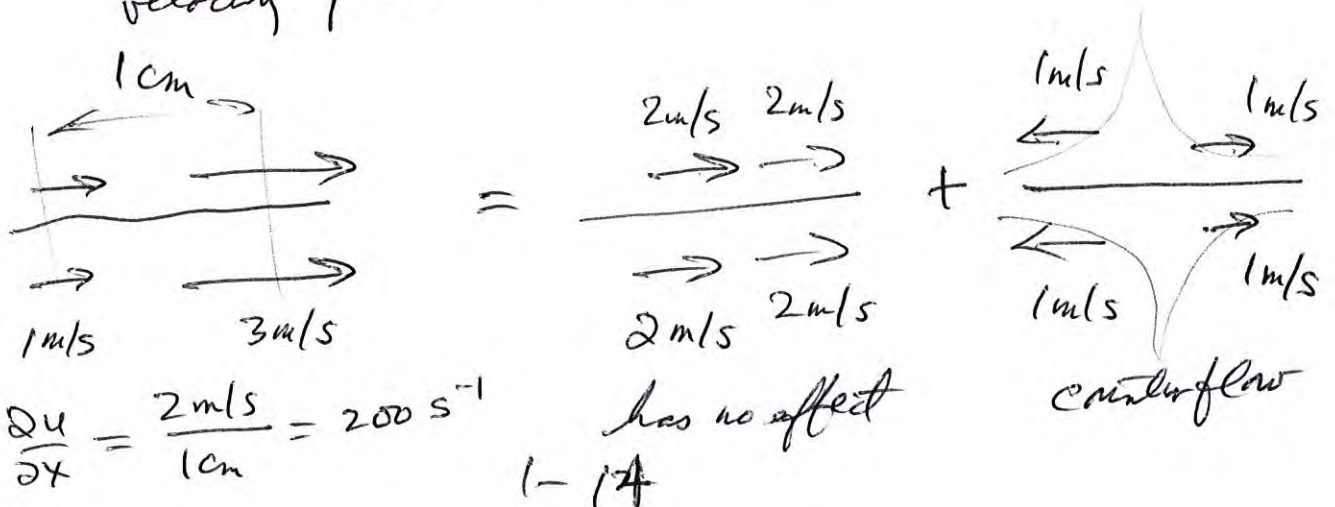 velocity
1 cm
1m/s 1m/s
2m/s 2m/s
= +
1m/s 3m/s
2m/s 2m/s
1m/s 1m/s
∂u/∂x = 2m/s / 1cm = 200 s⁻¹
has no effect
counterflow
1-14